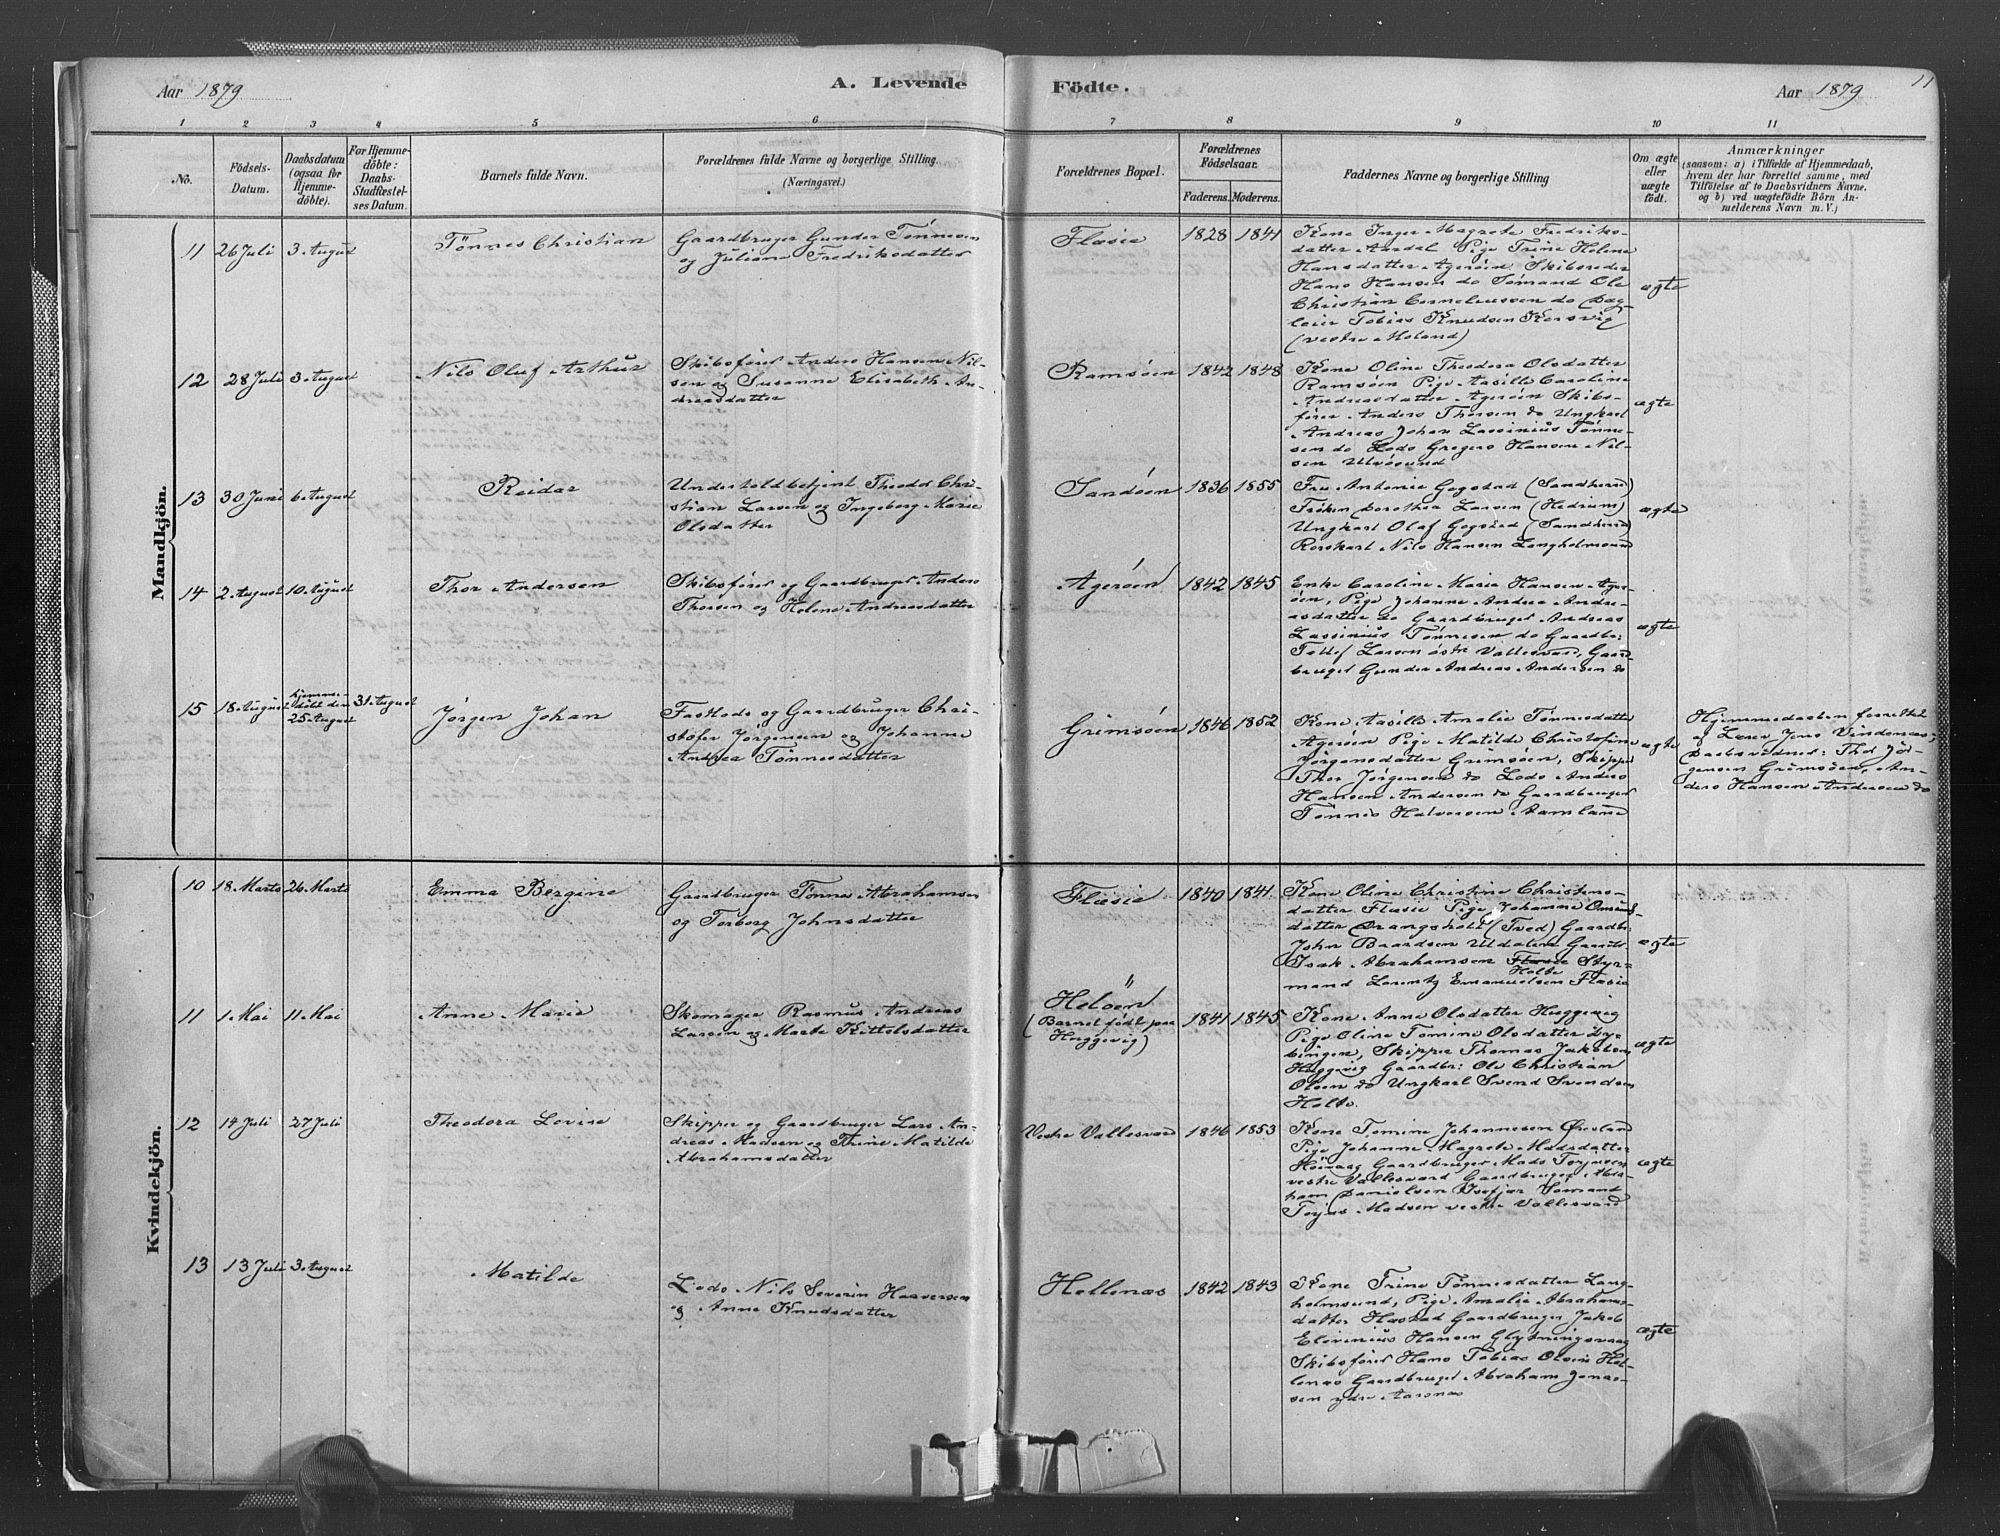 Aar 1879
A. Levende Fødte.
Aar 1879
11
1 2 3 4 5 6 7 8 9 10 11
No.
Fødsels-
Datum.
Daabsdatum
(ogsaa for
Hjemme-
døbte).
For Hjemme-
døbte:
Daabs-
Stadfæstel-
ses Datum.
Barnets fulde Navn.
Forældrenes fulde Navne og borgerlige Stilling.
(Næringsvei.)
Forældrenes Bopæl.
Forældrenes
Fødselsaar.
Faderens. Moderens.
Faddernes Navne og borgerlige Stilling
Om ægte
eller
uægte
født.
Anmærkninger
(saasom: a) i Tilfælde af Hjemmedaab,
hvem der har forrettet samme, med
Tilføielse af to Daabsvidners Navne.
og b) ved uægtefødte Børn An-
melderens Navn m. V.)
Mandkjön.
11 26 Juli 3 August
Tønnes Christian
Gaardbruger Gunder Tønnesen
og Juliane Fredriksdatter
Flasie 1828 1841
Kone Inger Magrete Fredriks-
datter Aardal Pige Trine Helene
Hansdatter Agerøen Skibsreder
Hans Hansen do Sømand Ole
Christian Corneliussen do Dag-
leier Tobias Knudsen Korsvig
(vestre Moland)
ægte
12 28 Juli 3 August
Nils Oluf Arthur
Skibsfører Anders Hansen Nil-
sen og Susanne Elisabeth An-
dreasdatter
Ramsöen 1842 1848
Kone Oline Theodora Olsdatter
Ramsöen Pige Aasille Caroline
Andreasdatter Agerøen Skibs-
fører Anders Thorsen do Ungkarl
Andreas Johan Lassinius Tønne-
sen do Lods Gregers Hansen Nil-
sen Ulvøsund
ægte
13 30 Juni 6 August
Reidar
Underholdbetjent Theodor Chri-
stian Larsen og Ingeborg Marie
Olsdatter
Sandøen 1836 1855
Fru Antonie Gogstad (Sandherred)
Frøken Dorothea Larsen (Hedrum)
Ungkarl Olaf Gogstad (Sandherred)
Rorskarl Nils Hansen Langholmsund
ægte
14 2 August 10 August
Thor Andersen
Skibsfører og Gaardbruger Anders
Thorsen og Helene Andreasdatter
Agerøen 1842 1845
Enke Caroline Marie Hansen Age-
røen, Pige Johanne Andrea Andre-
asdatter do Gaardbruger Andreas
Lassinius Tønnesen do Gaardbr:
Tollef Larsen østre Vallesverd, Gaard-
bruger Gunder Andreas Andersen do
ægte
15 18 August hjemme-
døbt den
25 August 31 August
Jørgen Johan
Fastlods og Gaardbruger Chri-
stofer Jørgensen og Johanne
Andrea Tønnesdatter
Grimsöen 1846 1852
Kone Aasille Amalie Tønnesdatter
Agerøen Pige Matilde Christofine
Jørgensdatter Grimsöen, Skipper
Thor Jørgensen do Lods Anders
Hansen Andersen do Gaardbruger
Tønnes Halvorsen Aamland
ægte
Hjemmedaaben forrettet
af Lærer Jens Vindenæs;
Daabsvidner: Thor Jør-
gensen Grimsöen, An-
ders Hansen Andersen do
Kvindekjön.
10 18 Marts 26 Marts
Emma Bergine
Gaardbruger Tønnes Abrahamsen
og Torborg Johnsdatter
Flasie 1840 1841
Kone Oline Christine Christens-
datter Flasie Pige Johanne Omunds-
datter Drangsholt (Tved) Gaardbr:
John Baardsen Uldalen Gaardbr
Isak Abrahamsen Flasie Styr-
Holte
mand Lorentz Emanuelsen Flasie
ægte
11 1 Mai 11 Mai
Anne Marie
Skomager Rasmus Andreas
Larsen og Marte Kittelsdatter
Helöen
(Barnet født paa
Huggevig)
1841 1845
Kone Anne Olsdatter Huggevig
Pige Oline Tomine Olsdatter Ly-
bingen, Skipper Thomas Jakobsen
Huggevig Gaardbr: Ole Christian
Olsen do Ungkarl Svend Svendsen
Holte.
ægte
12 14 Juli 27 Juli
Theodora Lovise
Skipper og Gaardbruger Lars An-
dreas Madsen og Trine Matilde
Abrahamsdatter
Vestre Vallesverd 1846 1853
Kone Tomine Johannesen Øresland
Pige Johanne Magrete Madsdatter
Høivaag Gaardbruger Mads Torjusen
vestre Vallesverd Gaardbruger Abra-
ham Danielsen Isefjær Sømand
Torjus Madsen vestre Vallesverd
ægte
13 13 Juli 3 August
Matilde
Lods Nils Severin Halversen
og Anne Knudsdatter
Hellenæs 1842 1843
Kone Trine Tønnesdatter Lang-
holmsund, Pige Amalie Abrahams-
datter Hæstad Gaardbruger Jakob
Elevinius Hansen Glytningsvaag
Skibsfører Hans Tobias Olsen Hel-
lenæs Gaardbruger Abraham Jonas-
sen ydre Aarsnæs
ægte